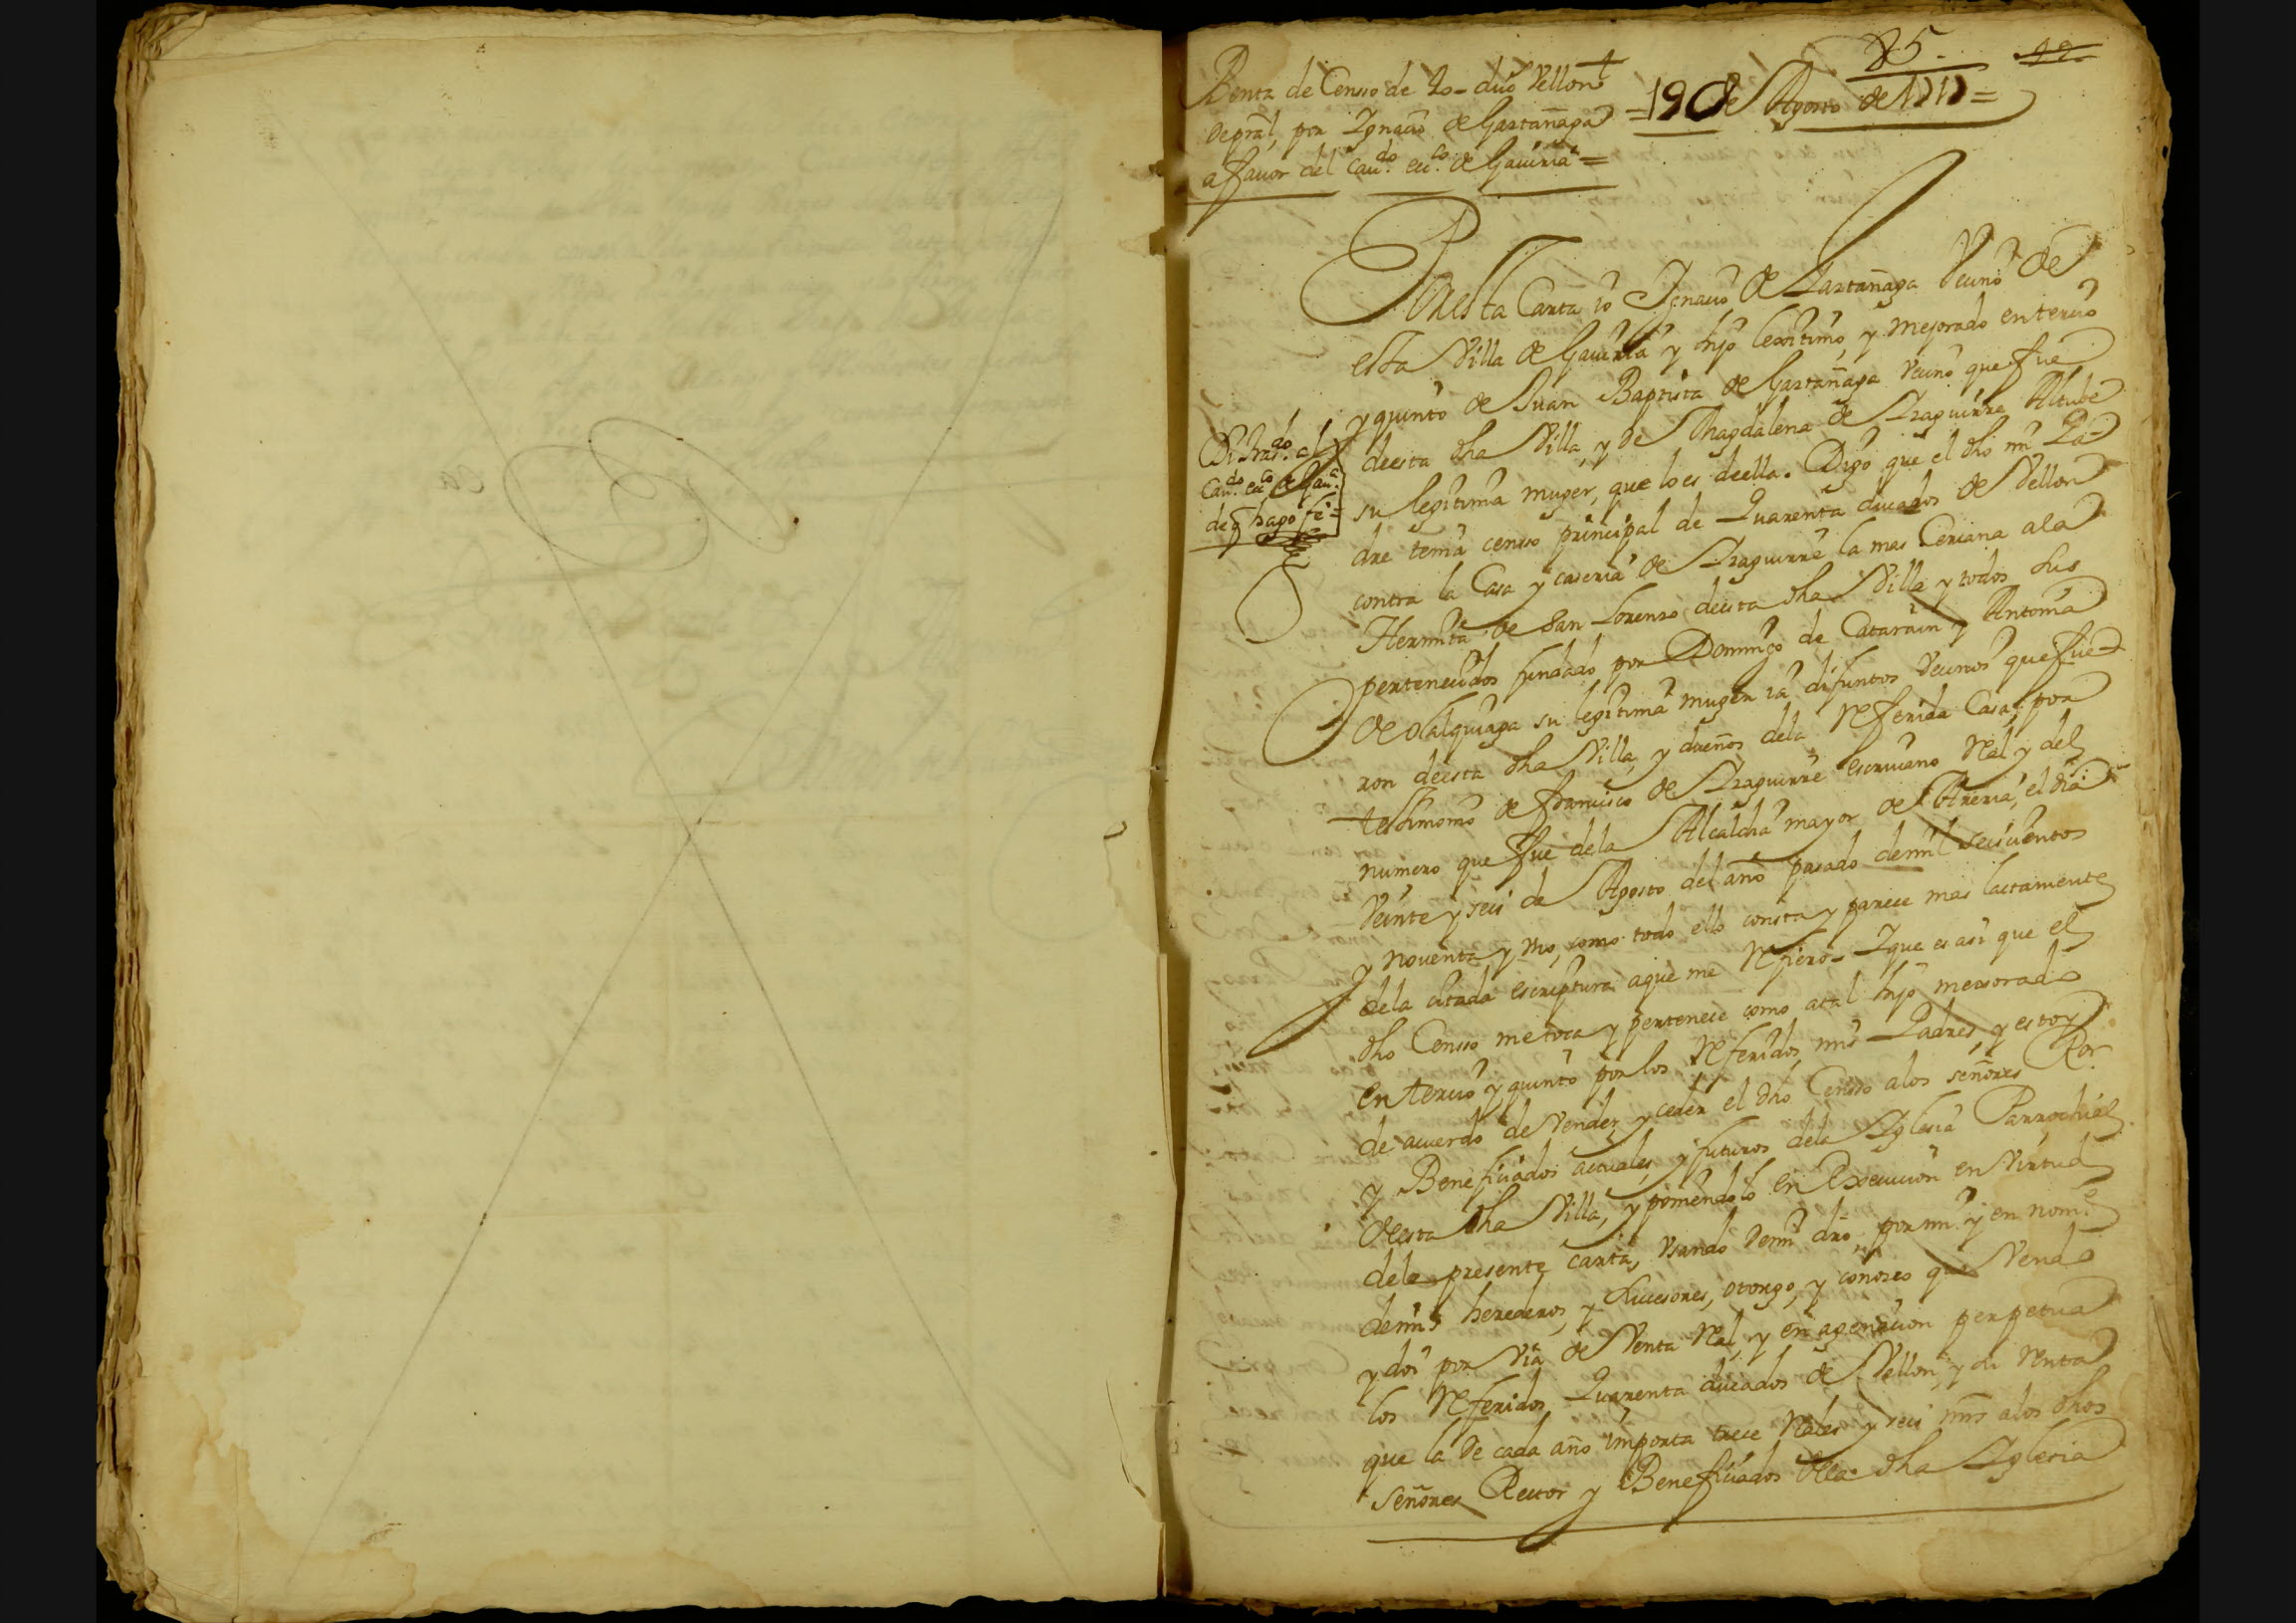 85.
Benta de Censso de 40 dus Vellon
de pral, por Ygnacio de Gastañaga
a favor del Cavdo. ecco. de Gaviria =
19 de Agosto de 1717 =
Por esta Carta io Ignacio de Gastañaga Vecino de
esta Villa de Gaviria y hijo lexitimo, y mejorado en tercio
y quinto de Juan Baptista de Gastañaga Vecino que fue
de esta dha Villa, y de Magdalena de Yraguirre Altube
su legitima muger, que lo es de ella. Digo que el dho mi Pa-
dre tenia censso principal de Quarenta ducados de Vellon
contra la Casa y caseria de Yraguirre la mas Cercana a la
Hermita de San Lorenzo de esta dha Villa y todos sus
pertenecidos fundado por Domingo de Catarain y Antonia
de Olalquiaga su legitima muger ia difuntos Vecinos que fue-
ron de esta dha Villa, y dueños de la Referida Casa, por
testimonio de Francisco de Yraguirre escrivano Real y del
numero que fue de la Alcaldia mayor de Areria, el dia
Veinte y seis de Agosto del año pasado de mil seiscientos
y noventa y uno, como todo ello consta y parece mas lactamente
de la citada escriptura a que me Refiero. Y que es asi que el
dho Censso me toca y pertenece como a tal hijo mexorado
en tercio y quinto por los Referidos mis Padres, y estoy
de acuerdo de Vender, y ceder el dho Censso a los señores Ror.
y Beneficiados actuales, y futuros de la Yglesia Parrochial
de esta dha Villa, y poniendolo en Execucion en Virtud
de la presente carta, Usando de mi dro, por mi y en nome
de mis herederos, y sucesores, otorgo, y conozco que Vendo
y doi por Via de Venta Real, y enagenacion perpetua
los Referidos Quarenta ducados de Vellon, y su Renta
que la de cada año importa trece Reales y seis mrs a los dhos
señores Rector y Beneficiados de la dha Yglesia
Di trasdo. al
Cavdo. ecco. de Gava.
de q hago fe =